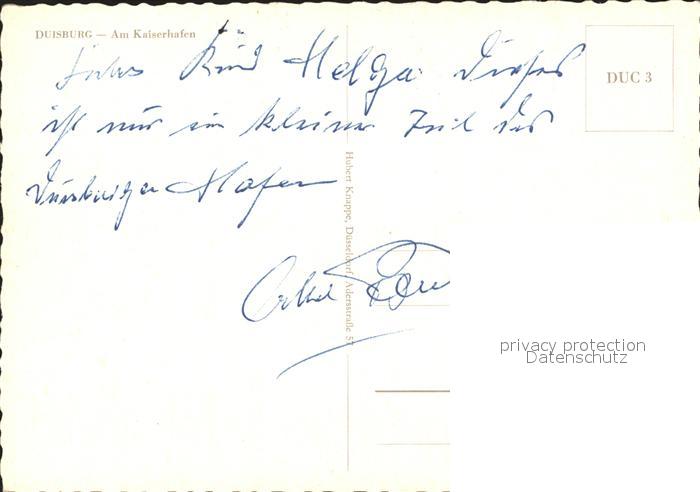 DUISBURG — Am Kaiserhafen
DUC 3
Liebes Kind Helga Dieses
ist nur ein kleiner Teil des
Duisburger Hafen
Onkel
Hubert Knappe, Düsseldorf, Adersstraße 57
privacy protection
Datenschutz